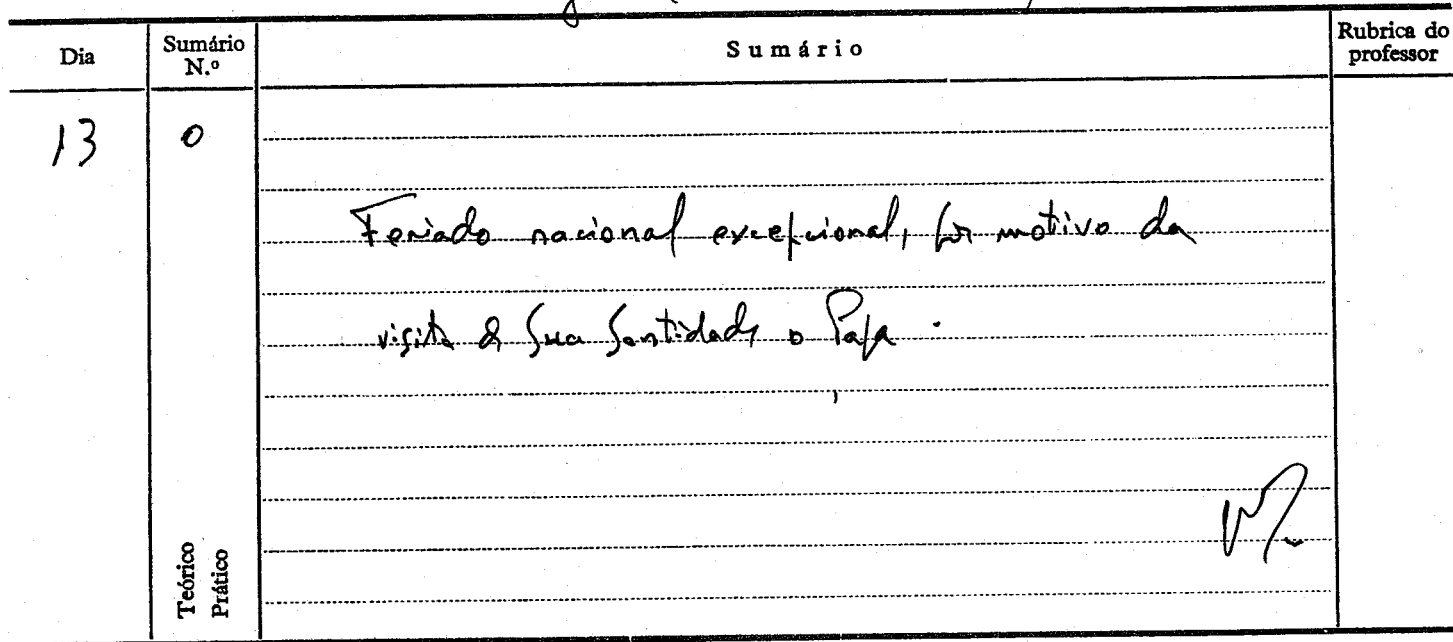 Dia Sumário N.º Sumário Rubrica do professor
13 0
Feriado nacional excepcional, por motivo da
visita de Sua Santidade o Papa.
Teórico
Prático